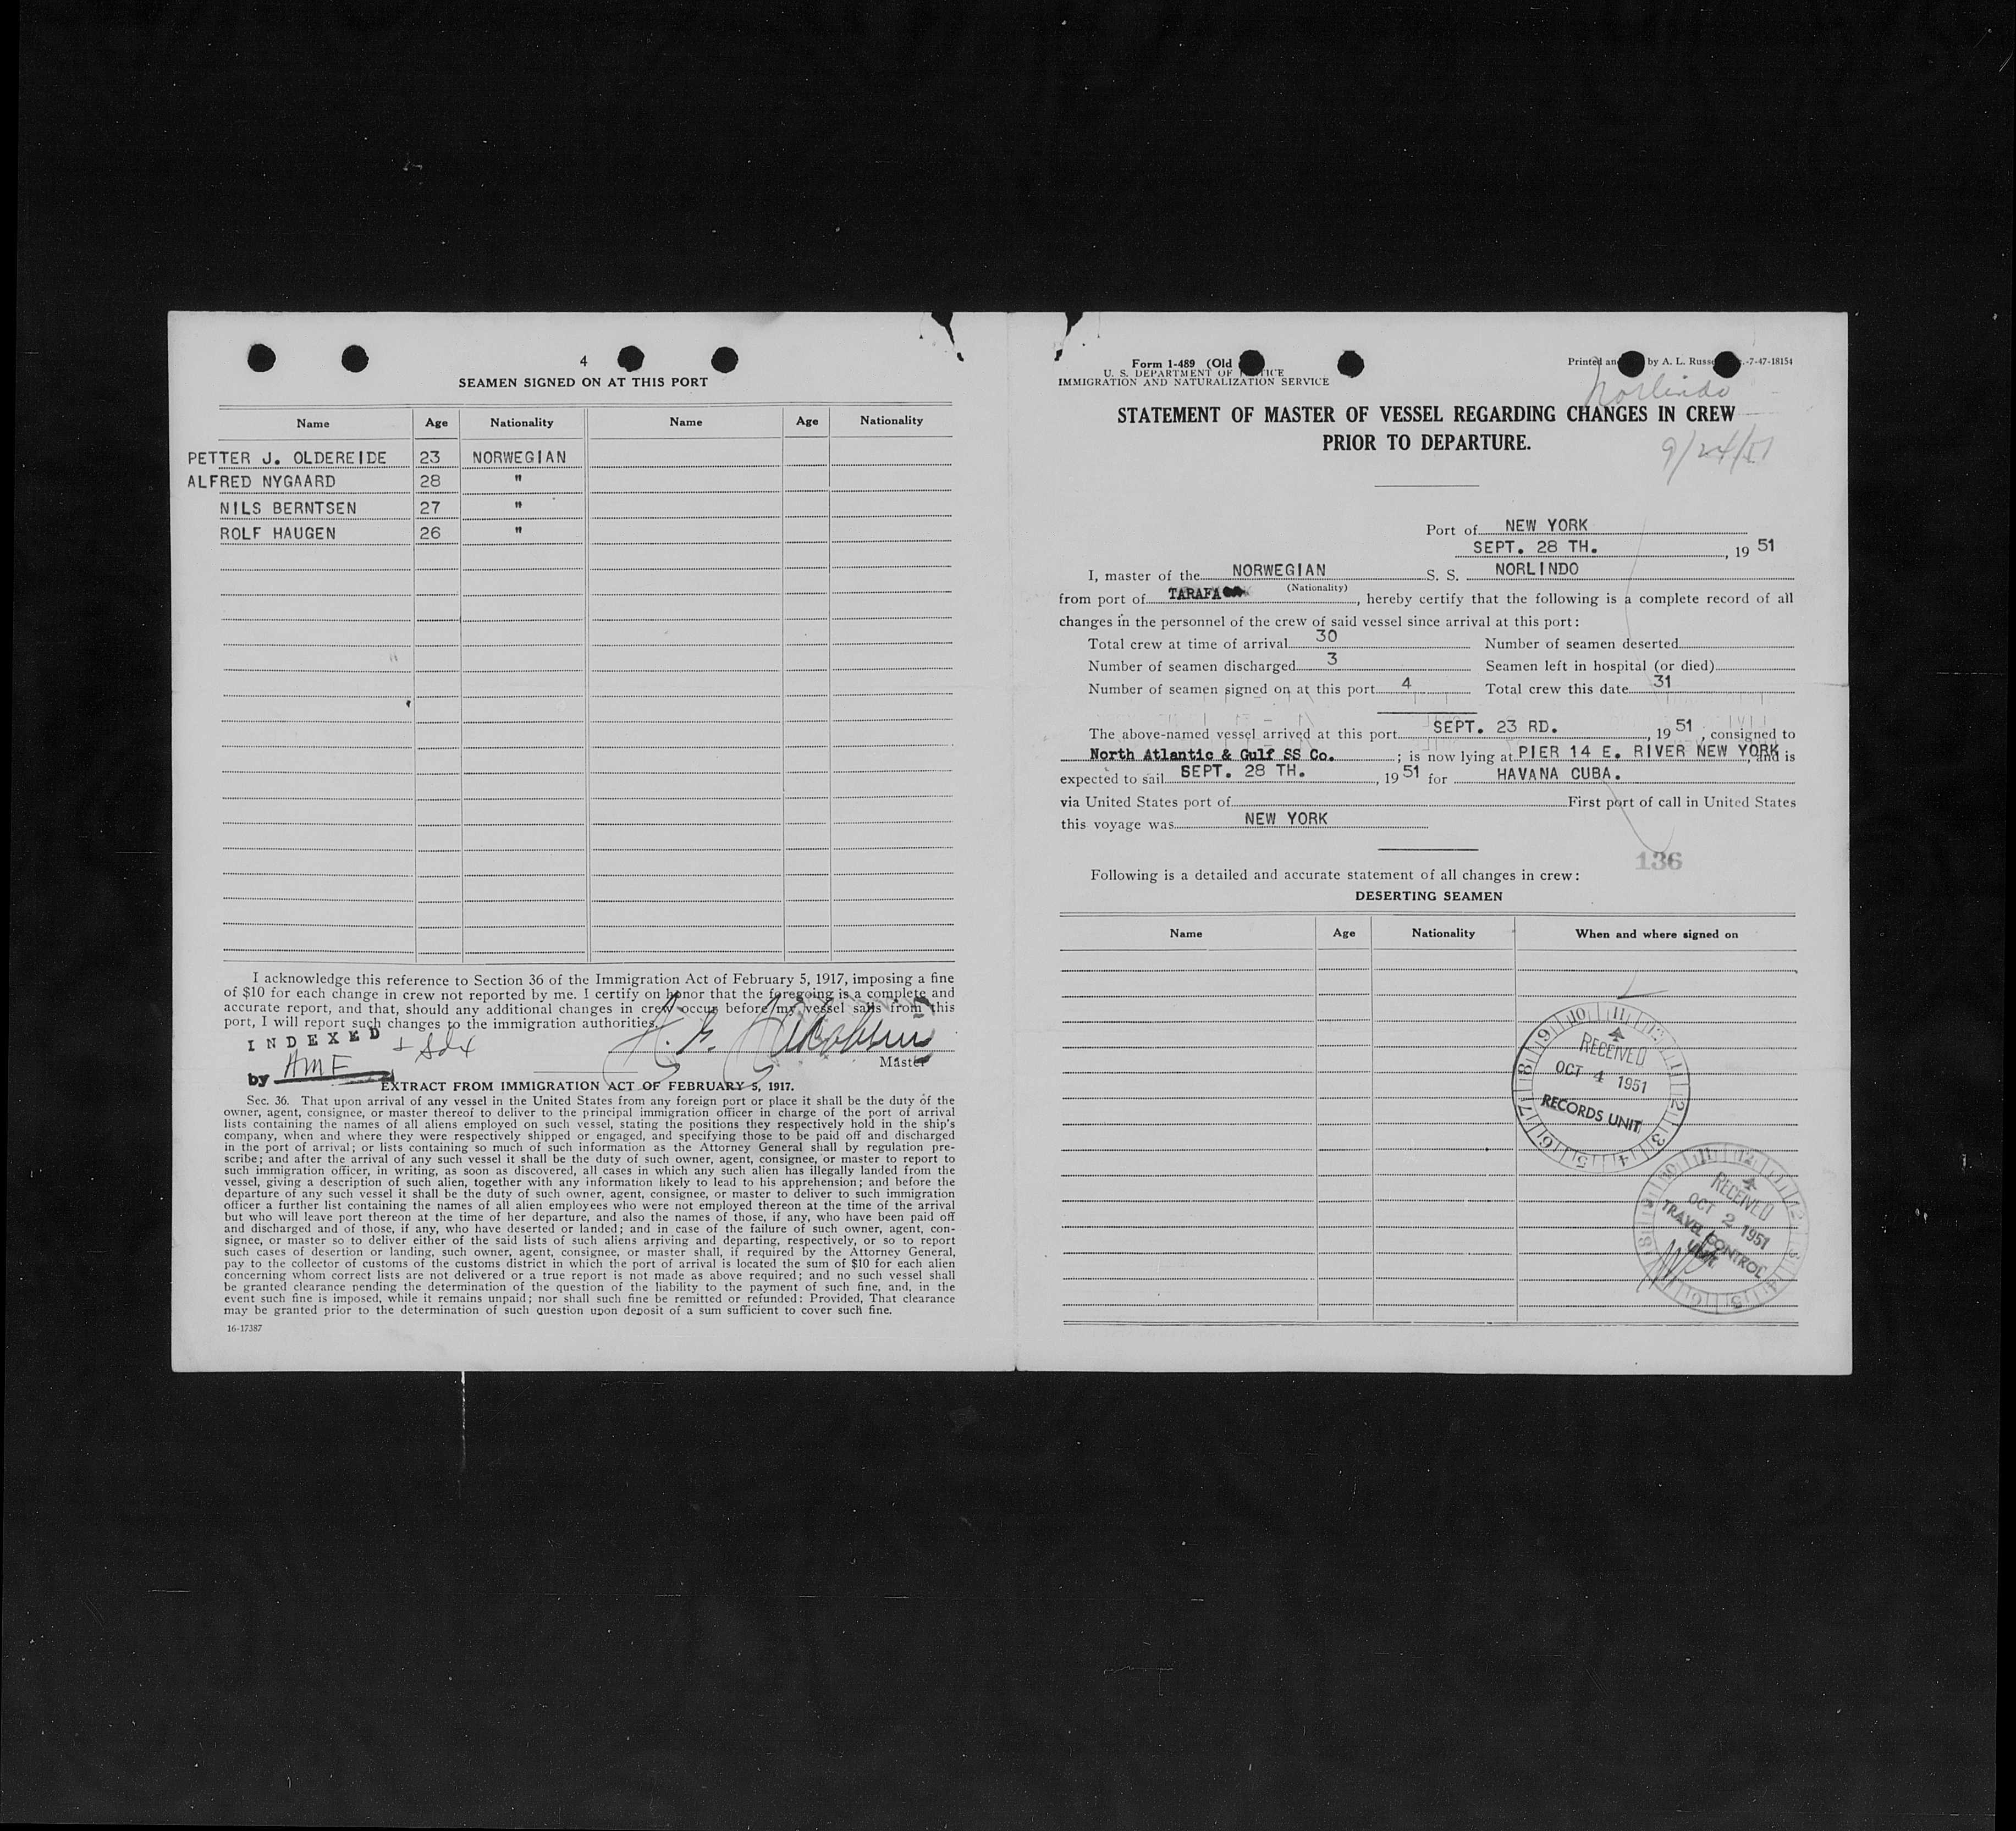 4
SEAMEN SIGNED ON AT THIS PORT
Name Age Nationality Name Age Nationality
PETTER J. OLDEREIDE 23 NORWEGIAN
ALFRED NYGAARD 28 "
NILS BERNTSEN 27 "
ROLF HAUGEN 26 "
I acknowledge this reference to Section 36 of the Immigration Act of February 5, 1917, imposing a fine
of $10 for each change in crew not reported by me. I certify on honor that the foregoing is a complete and
accurate report, and that, should any additional changes in crew occur before my vessel sails from this
port, I will report such changes to the immigration authorities.
INDEXED
by AMF
Master
EXTRACT FROM IMMIGRATION ACT OF FEBRUARY 5, 1917.
Sec. 36. That upon arrival of any vessel in the United States from any foreign port or place it shall be the duty of the
owner, agent, consignee, or master thereof to deliver to the principal immigration officer in charge of the port of arrival
lists containing the names of all aliens employed on such vessel, stating the positions they respectively hold in the ship's
company, when and where they were respectively shipped or engaged, and specifying those to be paid off and discharged
in the port of arrival; or lists containing so much of such information as the Attorney General shall by regulation pre-
scribe; and after the arrival of any such vessel it shall be the duty of such owner, agent, consignee, or master to report to
such immigration officer, in writing, as soon as discovered, all cases in which any such alien has illegally landed from the
vessel, giving a description of such alien, together with any information likely to lead to his apprehension; and before the
departure of any such vessel it shall be the duty of such owner, agent, consignee, or master to deliver to such immigration
officer a further list containing the names of all alien employees who were not employed thereon at the time of the arrival
but who will leave port thereon at the time of her departure, and also the names of those, if any, who have been paid off
and discharged and of those, if any, who have deserted or landed; and in case of the failure of such owner, agent, con-
signee, or master so to deliver either of the said lists of such aliens arriving and departing, respectively, or so to report
such cases of desertion or landing, such owner, agent, consignee, or master shall, if required by the Attorney General,
pay to the collector of customs of the customs district in which the port of arrival is located the sum of $10 for each alien
concerning whom correct lists are not delivered or a true report is not made as above required; and no such vessel shall
be granted clearance pending the determination of the question of the liability to the payment of such fine, and, in the
event such fine is imposed, while it remains unpaid; nor shall such fine be remitted or refunded: Provided, That clearance
may be granted prior to the determination of such question upon deposit of a sum sufficient to cover such fine.
16-17387
Form 1-489 (Old
U. S. DEPARTMENT OF JUSTICE
IMMIGRATION AND NATURALIZATION SERVICE
Printed and by A. L. Russ -7-47-18154
Norlindo
STATEMENT OF MASTER OF VESSEL REGARDING CHANGES IN CREW
PRIOR TO DEPARTURE.
9/24/51
Port of NEW YORK
SEPT. 28 TH., 19 51
I, master of the NORWEGIAN S. S. NORLINDO
(Nationality)
from port of TARAFA, hereby certify that the following is a complete record of all
changes in the personnel of the crew of said vessel since arrival at this port:
Total crew at time of arrival 30 Number of seamen deserted
Number of seamen discharged 3 Seamen left in hospital (or died)
Number of seamen signed on at this port 4 Total crew this date 31
The above-named vessel arrived at this port SEPT. 23 RD., 19 51, consigned to
North Atlantic & Gulf SS Co.; is now lying at PIER 14 E. RIVER NEW YORK, and is
expected to sail SEPT. 28 TH., 19 51 for HAVANA CUBA.
via United States port of First port of call in United States
this voyage was NEW YORK
136
Following is a detailed and accurate statement of all changes in crew:
DESERTING SEAMEN
Name Age Nationality When and where signed on
RECEIVED
OCT 4 1951
RECORDS UNIT
RECEIVED
OCT 2 1951
TRAVEL CONTROL
UNIT